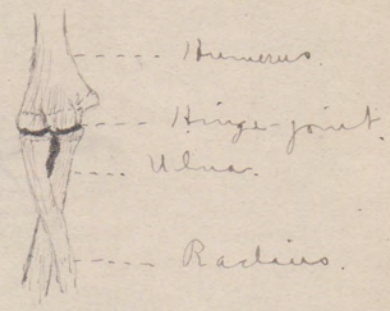 Humerus.
Hinge-joint.
Ulna.
Radius.